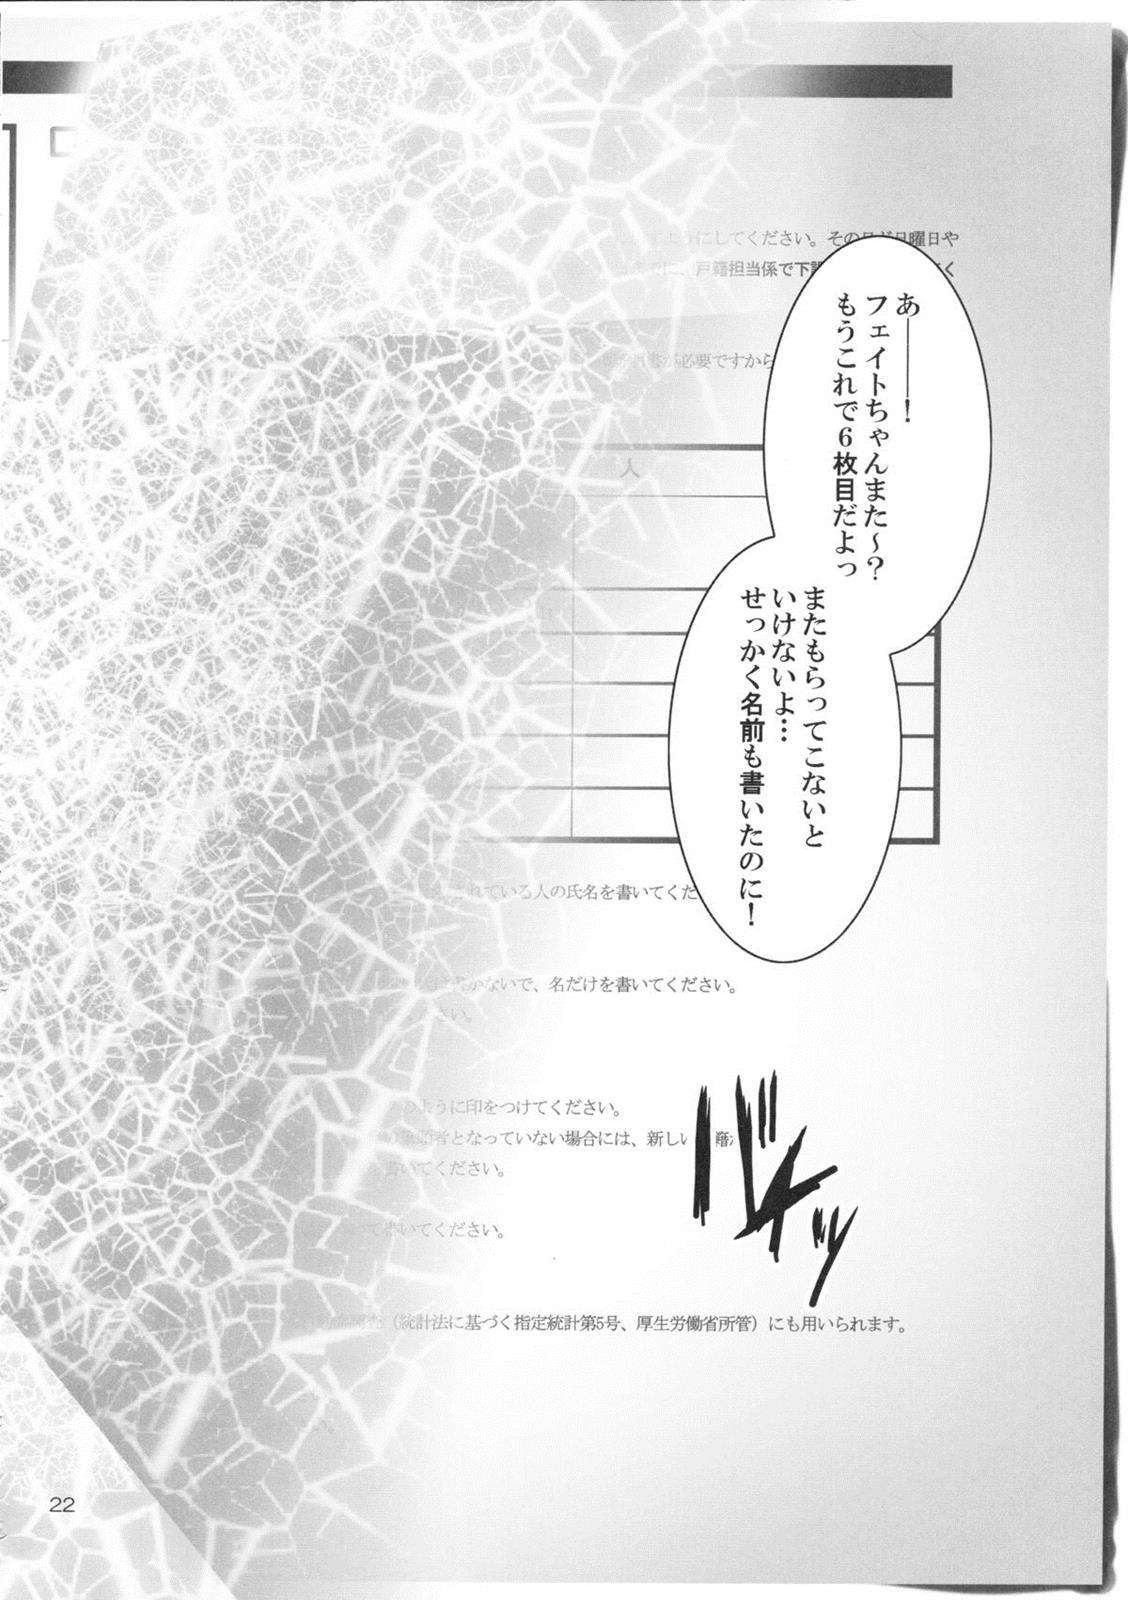 あ———！
フェイトちゃんまた～？
もうこれで６枚目だよっ
またもらってこないと
いけないよ…
せっかく名前も書いたのに！
にしてください。その
日曜日や
戸籍担当係で下
く
必要ですから
人
れている人の氏名を書いてくだ
ないで、名だけを書いてください。
さい。
ように印をつけてください。
者となっていない場合には、新しい
いてください。
書いてください。
（統計法に基づく指定統計第5号、厚生労働省所管）にも用いられます。
22